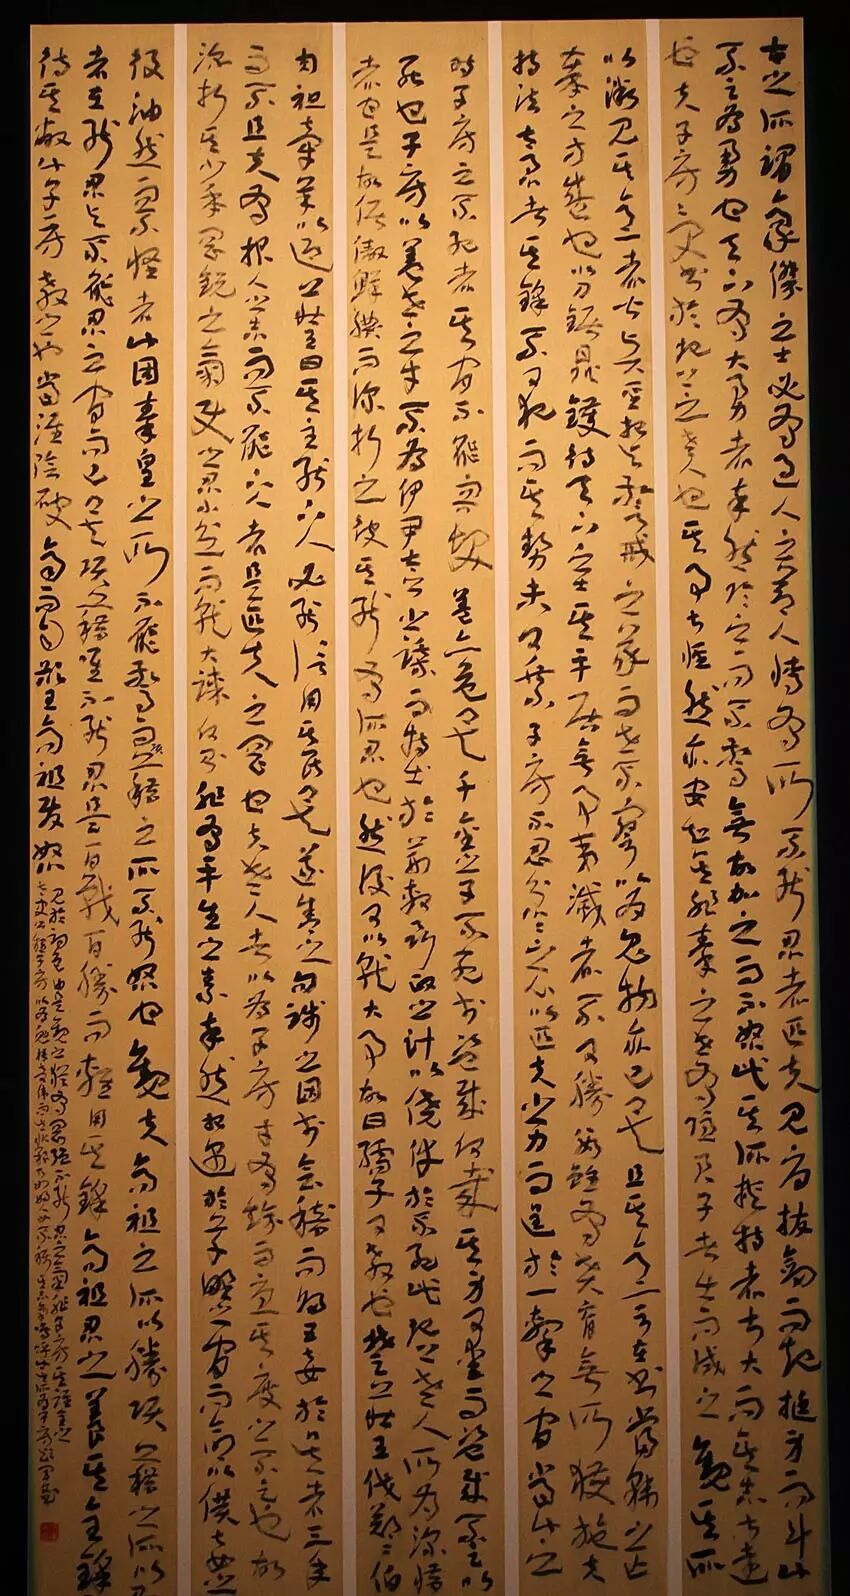 古之所謂豪傑之士必有過人之節人情有所不能忍者匹夫見辱拔劍而起挺身而鬥此
不足為勇也天下有大勇者卒然臨之而不驚無故加之而不怒此其所挾持者甚大而其志甚遠
也夫子房受書於圯上之老人也其事甚怪然亦安知其非秦之世有隱君子者出而試之觀其所
以微見其意者皆聖賢相與警戒之義而世不察以為鬼物亦已過矣且其意不在書當韓之亡
秦之方盛也以刀鋸鼎鑊待天下之士其平居無事夷滅者不可勝數雖有賁育無所獲施夫
持法太急者其鋒不可犯而其勢未可乘子房不忍忿忿之心以匹夫之力而逞於一擊之間當此之
時子房之不死者其間不能容髮蓋亦危矣千金之子不死於盜賊何哉其身可愛而盜賊不足以
死也子房以蓋世之才不為伊尹太公之謀而特出於荊軻聶政之計以僥倖於不死此圯上老人所為深惜
者也是故倨傲鮮腆而深折之彼其能有所忍也然後可以就大事故曰孺子可教也楚莊王伐鄭鄭伯
肉袒牽羊以迎莊王曰其主能下人必能信用其民矣遂舍之勾踐之困於會稽而歸臣妾於吳者三年
而不倦且夫有報人之志而不能下人者是匹夫之剛也夫老人者以為子房才有餘而憂其度量之不足故
深折其少年剛銳之氣使之忍小忿而就大謀何則非有平生之素卒然相遇於草野之間而命以僕妾之
役油然而不怪者此固秦皇之所不能驚而項籍之所不能怒也觀夫高祖之所以勝項籍之所以敗
者在能忍與不能忍之間而已矣項籍唯不能忍是以百戰百勝而輕用其鋒高祖忍之養其全鋒
待其敝此子房教之也當淮陰破齊而欲自王高祖發怒
見於詞色由是觀之猶有剛強不能忍之氣非子房其誰全之
太史公疑子房以為魁梧奇偉而其狀貌乃如婦人女子不稱其志氣嗚呼此其所以為子房歟